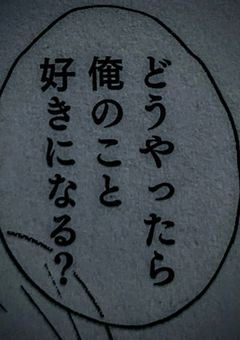 どうやったら
俺のこと
好きになる？